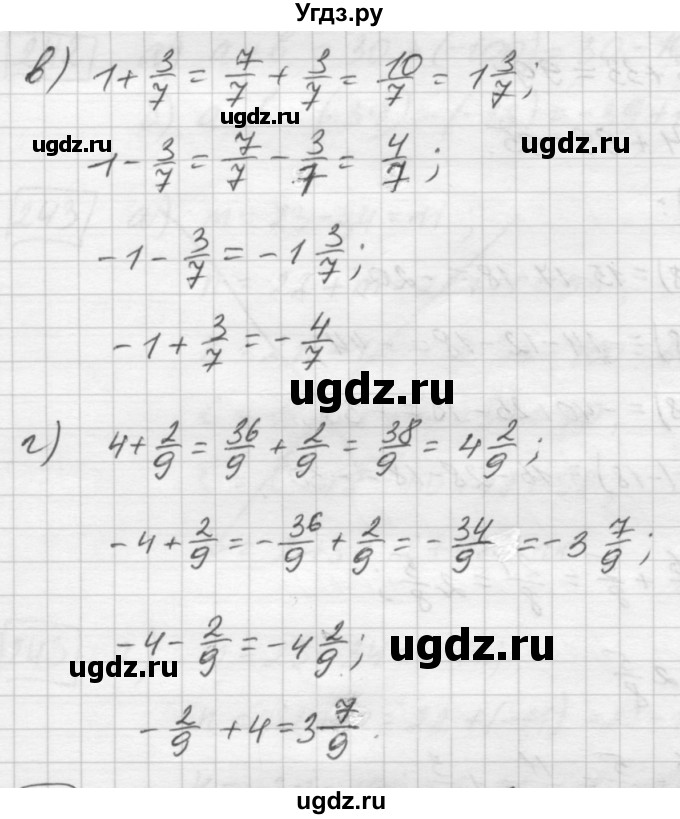 Угдз.ру
в) 1 + 3/7 = 7/7 + 3/7 = 10/7 = 1 3/7;
ugdz.ru ugdz.ru ugdz.ru
1 - 3/7 = 7/7 - 3/7 = 4/7;
-1 - 3/7 = -1 3/7;
-1 + 3/7 = -4/7
ugdz.ru ugdz.ru
г) 4 + 2/9 = 36/9 + 2/9 = 38/9 = 4 2/9;
-4 + 2/9 = -36/9 + 2/9 = -34/9 = -3 7/9;
-4 - 2/9 = -4 2/9;
ugdz.ru ugdz.ru
-2/9 + 4 = 3 7/9.
ugdz.ru